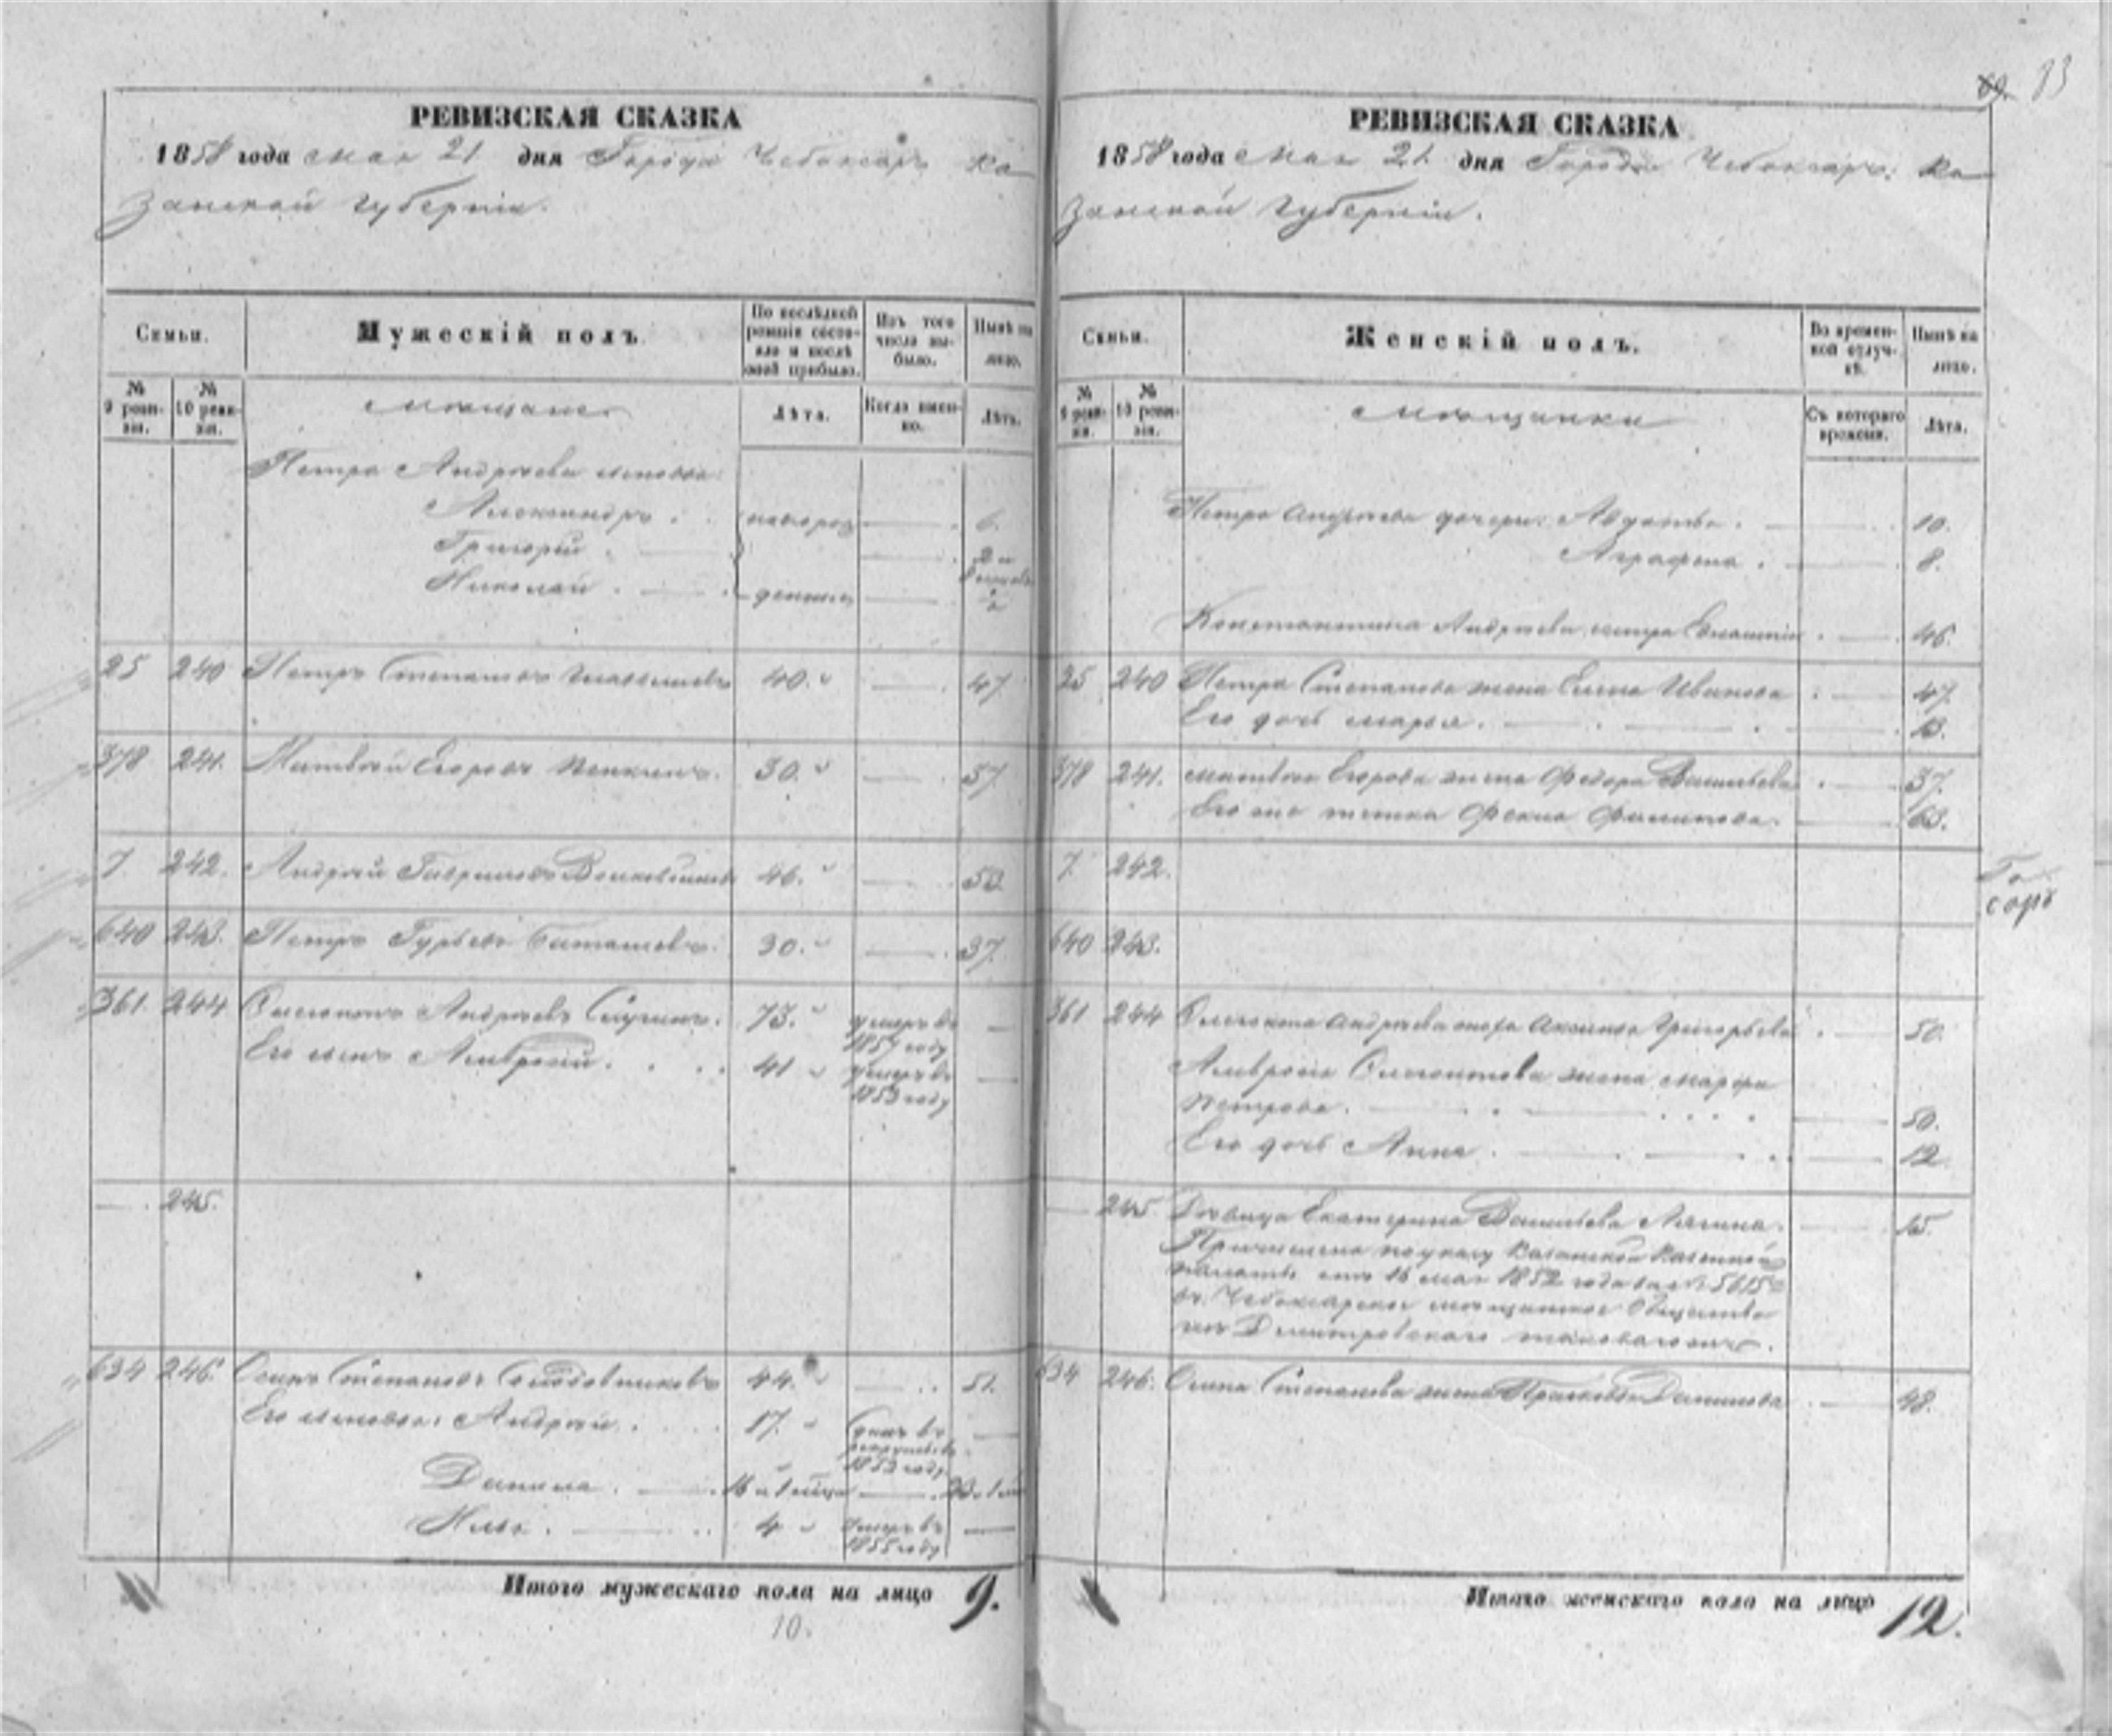 83
РЕВИЗСКАЯ СКАЗКА
1858 года мая 21 дня Города Чебоксаръ Ка
занской губерніи.
Семьи.
Мужескій полъ.
По послѣдней ревизіи состояло и послѣ оной прибыло.
Изъ того числа выбыло.
Нынѣ на лицо.
№ 9 ревизіи.
№ 10 ревизіи.
мѣщане
Лѣта.
Когда именно.
Лѣта.
Петра Андрѣева сыновья:
Александръ. новорож 6.
Григорій.
Николай. денныя
25 240 Петръ Степановъ 40. 47
378 241. Матвѣй Егоровъ 30. 37
7. 242. Андрей Гавриловъ 46. 53
640 243. Петръ Гурьевъ 30. 37.
361. 244 Андрѣевъ 73. умеръ въ 1857 году
Его сынъ Амвросій. 41 умеръ въ 1853 году
245.
634 246. Осипъ Степановъ 44. 51.
Его сыновья: Андрей. 17. въ рекруты въ 1853 году
Данила. 16 и 1 мѣсца
Илья. 4 умеръ въ 1855 году
Итого мужескаго пола на лицо 9.
10.
РЕВИЗСКАЯ СКАЗКА
1858 года мая 21. дня Города Чебоксаръ. Ка
занской губерніи.
Семьи.
Женскій полъ.
Во временной отлучкѣ.
Нынѣ на лицо.
№ 9 ревизіи.
№ 10 ревизіи.
мѣщанки
Съ котораго времени.
Лѣта.
Петра Андрѣева дочери: Авдотья. 10.
Аграфена. 8.
Константина Андрѣева сестра 46.
25 240 Петра Степанова жена Елена Иванова 47.
Его дочь Марья. 13.
378 241. Матвѣя Егорова жена Федора Васильева 37.
Его же тетка Фекла Филипова. 63.
7. 242.
640 243.
361 244 Андрѣева жена Аксинья Григорьева 50.
Амвросія жена Марфа
Петрова. 50.
Его дочь Анна. 12
245 Дѣвица Екатерина Васильева 15.
Причислена по указу Казанской Казенной
палаты отъ 16 мая 1852 года за № 5615
въ Чебоксарское мѣщанское общество
изъ Дмитровскаго
634 246. Осипа Степанова жена Прасковья Данилова 48.
Итого женскаго пола на лицо 12.